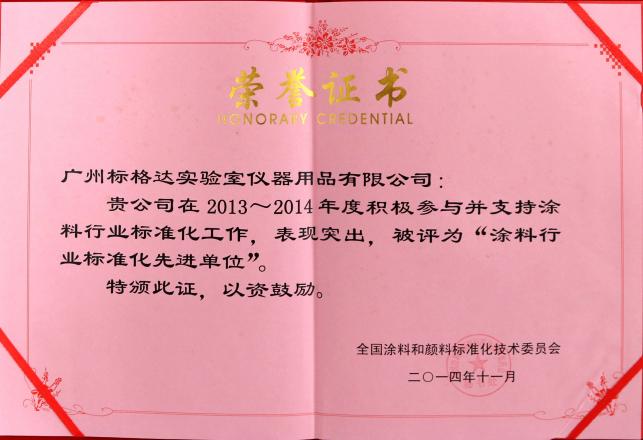 荣誉证书
HONORARY CREDENTIAL
广州标格达实验室仪器用品有限公司：
贵公司在 2013～2014 年度积极参与并支持涂
料行业标准化工作，表现突出，被评为“涂料行
业标准化先进单位”。
特颁此证，以资鼓励。
全国涂料和颜料标准化技术委员会
二〇一四年十一月